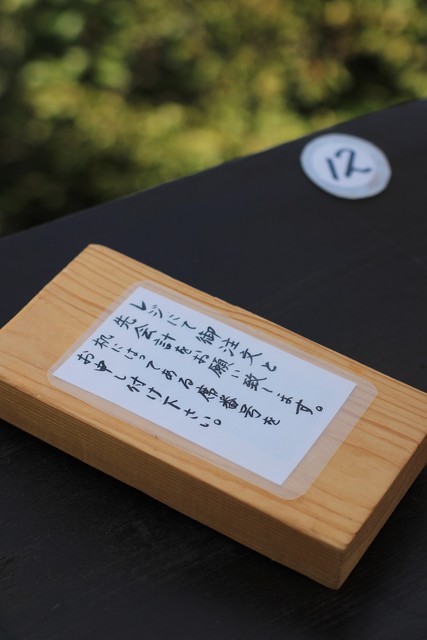 レジにて御注文と
先会計をお願い致します。
机にはってある席番号を
お申し付け下さい。
12